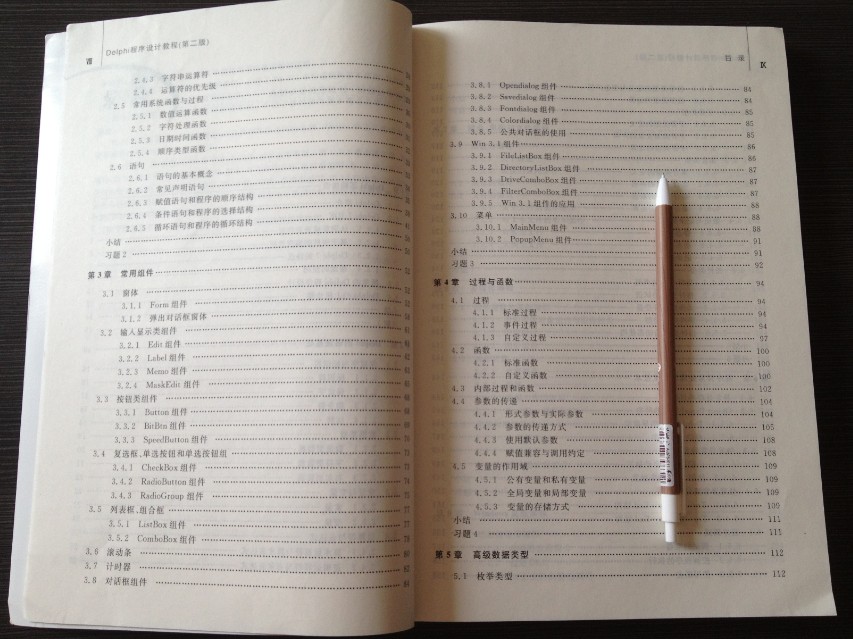 Ⅷ Delphi程序设计教程(第二版)
2.4.3 字符串运算符
2.4.4 运算符的优先级
2.5 常用系统函数与过程
2.5.1 数值运算函数
2.5.2 字符处理函数
2.5.3 日期时间函数
2.5.4 顺序类型函数
2.6 语句
2.6.1 语句的基本概念
2.6.2 常见声明语句
2.6.3 赋值语句和程序的顺序结构
2.6.4 条件语句和程序的选择结构
2.6.5 循环语句和程序的循环结构
小结
习题 2
第 3 章 常用组件
3.1 窗体
3.1.1 Form 组件
3.1.2 弹出对话框窗体
3.2 输入显示类组件
3.2.1 Edit 组件
3.2.2 Label 组件
3.2.3 Memo 组件
3.2.4 MaskEdit 组件
3.3 按钮类组件
3.3.1 Button 组件
3.3.2 BitBtn 组件
3.3.3 SpeedButton 组件
3.4 复选框、单选按钮和单选按钮组
3.4.1 CheckBox 组件
3.4.2 RadioButton 组件
3.4.3 RadioGroup 组件
3.5 列表框、组合框
3.5.1 ListBox 组件
3.5.2 ComboBox 组件
3.6 滚动条
3.7 计时器
3.8 对话框组件
目 录 Ⅸ
3.8.1 Opendialog 组件 84
3.8.2 Savedialog 组件 84
3.8.3 Fontdialog 组件 85
3.8.4 Colordialog 组件 85
3.8.5 公共对话框的使用 85
3.9 Win 3.1 组件 86
3.9.1 FileListBox 组件 86
3.9.2 DirectoryListBox 组件 87
3.9.3 DriveComboBox 组件 87
3.9.4 FilterComboBox 组件 87
3.9.5 Win 3.1 组件的应用 88
3.10 菜单 88
3.10.1 MainMenu 组件 88
3.10.2 PopupMenu 组件 91
小结 91
习题 3 92
第 4 章 过程与函数 94
4.1 过程 94
4.1.1 标准过程 94
4.1.2 事件过程 94
4.1.3 自定义过程 97
4.2 函数 100
4.2.1 标准函数 100
4.2.2 自定义函数 100
4.3 内部过程和函数 102
4.4 参数的传递 104
4.4.1 形式参数与实际参数 104
4.4.2 参数的传递方式 105
4.4.3 使用默认参数 108
4.4.4 赋值兼容与调用约定 108
4.5 变量的作用域 109
4.5.1 公有变量和私有变量 109
4.5.2 全局变量和局部变量 109
4.5.3 变量的存储方式 109
小结 111
习题 4 111
第 5 章 高级数据类型 112
5.1 枚举类型 112